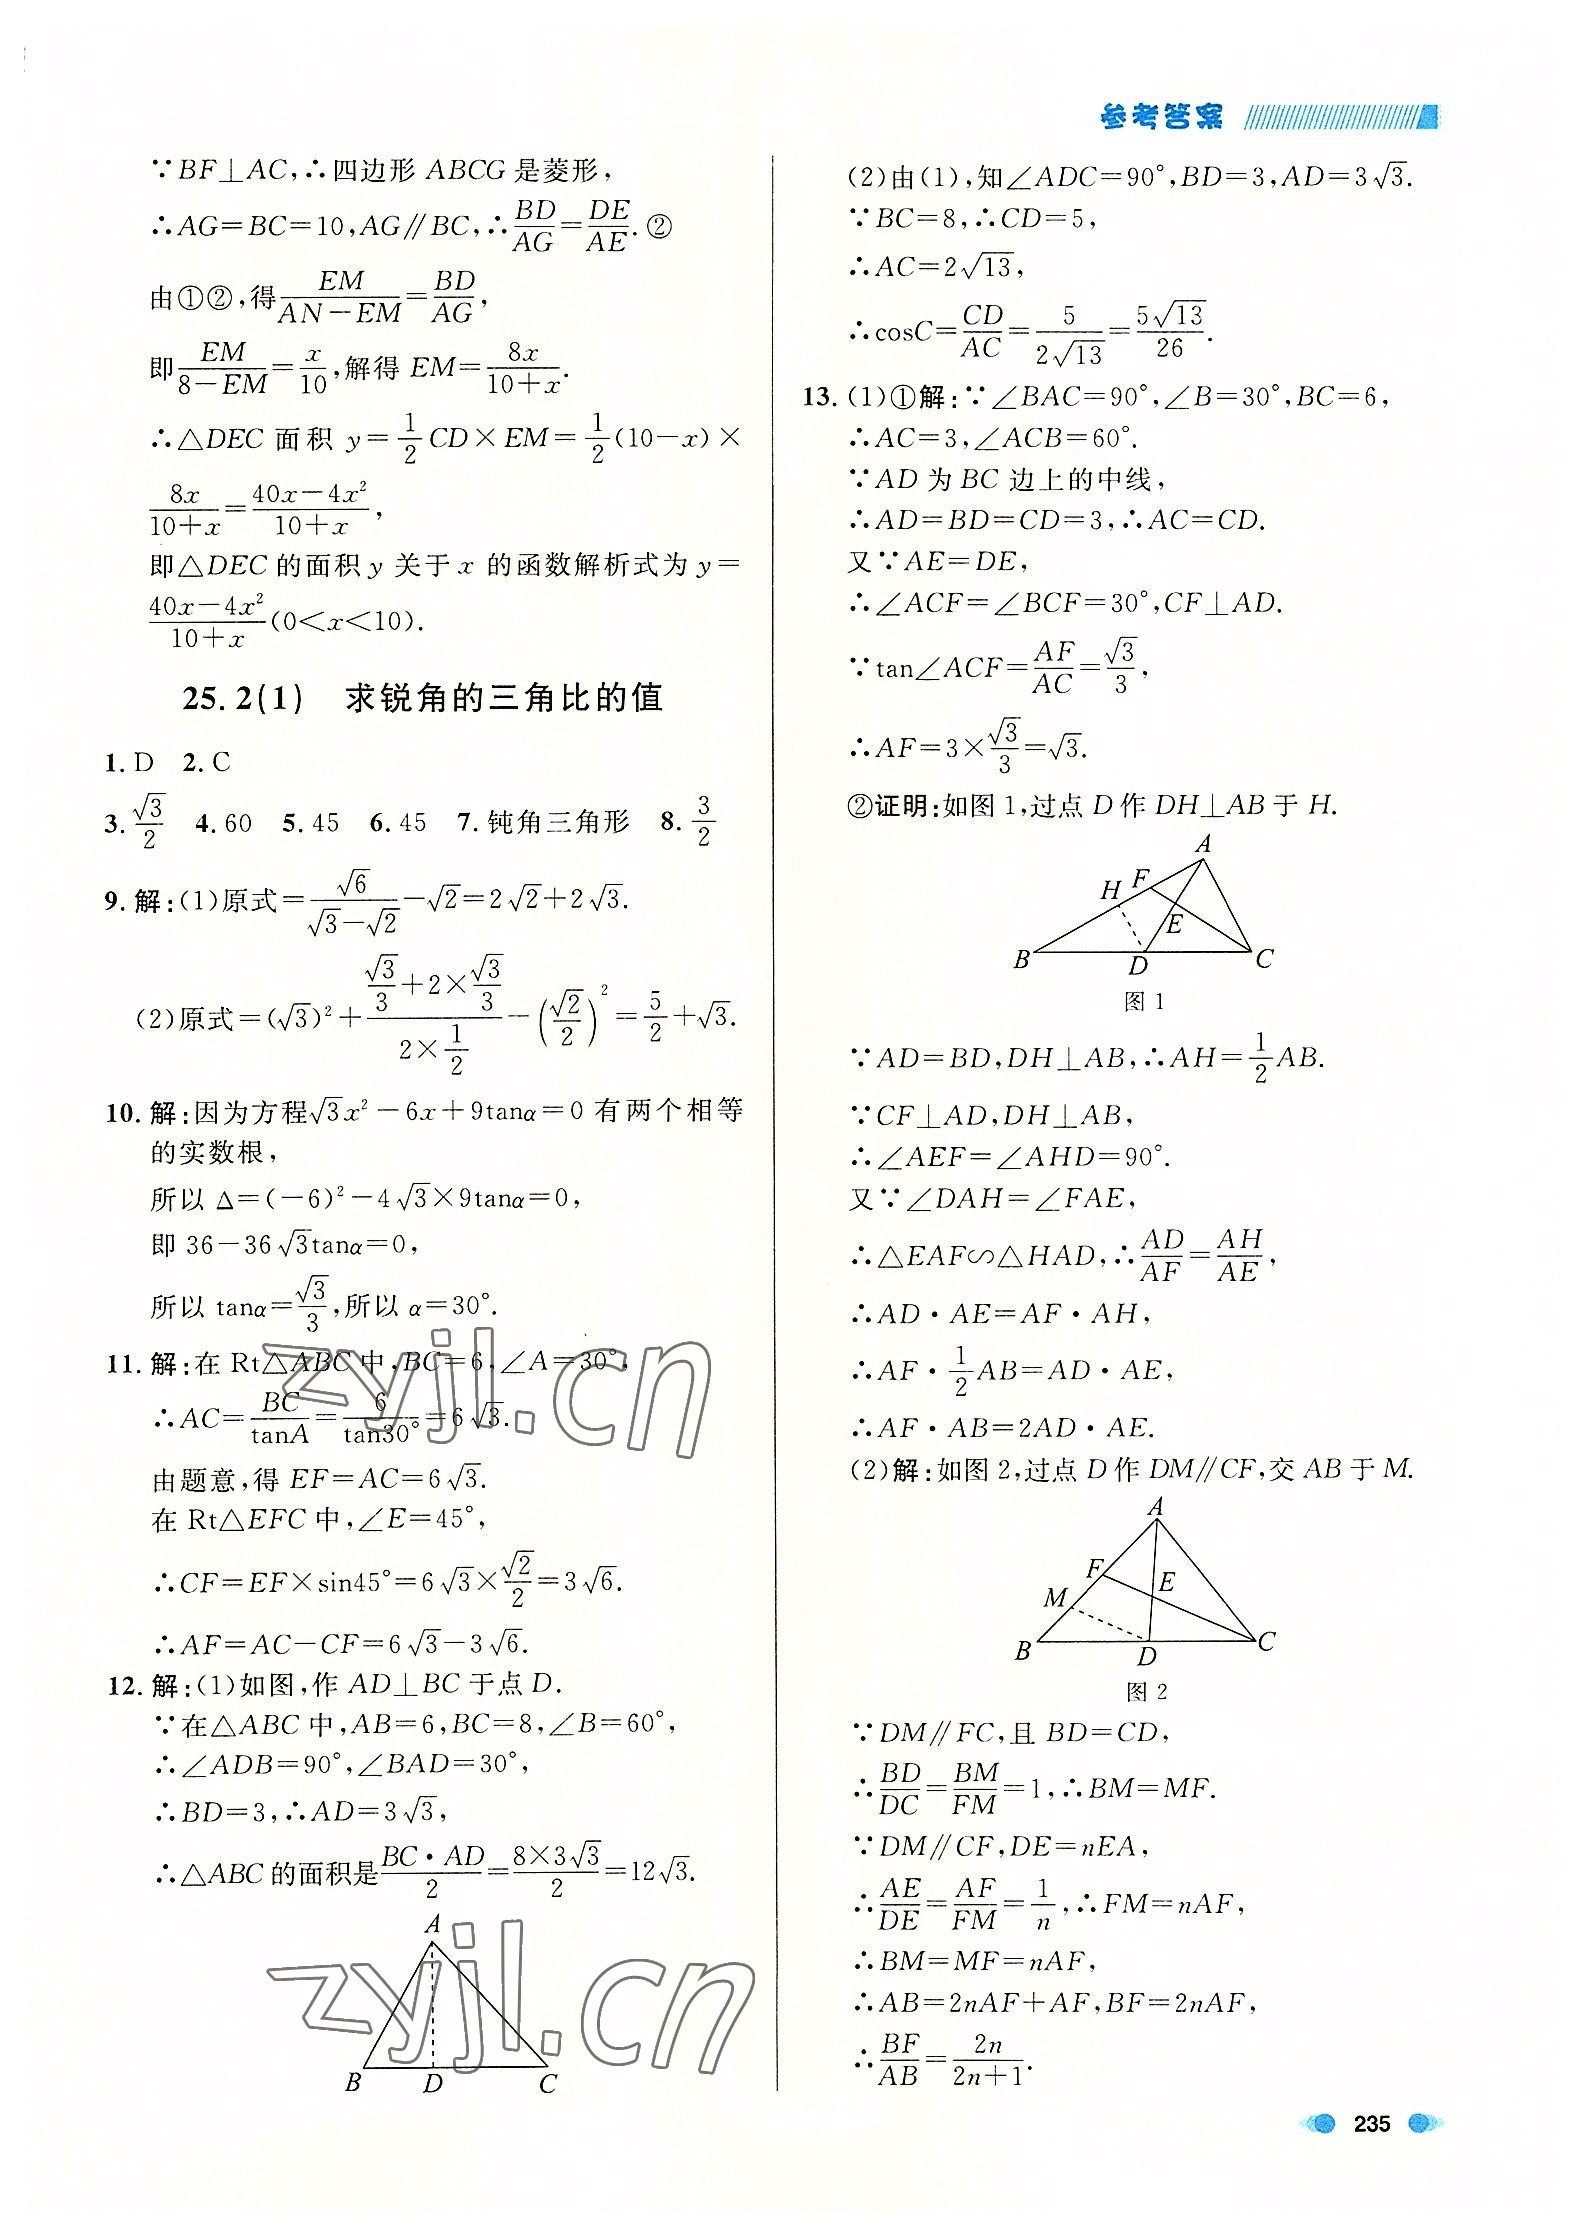 参考答案
∵BF⊥AC,∴四边形 ABCG 是菱形,
∴AG=BC=10,AG∥BC,∴BD/AG=DE/AE.②
由①②,得EM/(AN-EM)=BD/AG,
即EM/(8-EM)=x/10,解得 EM=8x/(10+x).
∴△DEC 面积 y=1/2 CD×EM=1/2(10-x)×
8x/(10+x)=(40x-4x²)/(10+x),
即△DEC 的面积 y 关于 x 的函数解析式为 y=
(40x-4x²)/(10+x)(0<x<10).
25.2(1) 求锐角的三角比的值
1.D 2.C
3.√3/2 4.60 5.45 6.45 7.钝角三角形 8.3/2
9.解:(1)原式=√6/(√3-√2)-√2=2√2+2√3.
(2)原式=(√3)²+(√3/3+2×√3/3)/(2×1/2)-(√2/2)²=5/2+√3.
10.解:因为方程√3x²-6x+9tanα=0 有两个相等
的实数根,
所以 Δ=(-6)²-4√3×9tanα=0,
即 36-36√3tanα=0,
所以 tanα=√3/3,所以 α=30°.
11.解:在 Rt△ABC 中,BC=6,∠A=30°,
∴AC=BC/tanA=6/tan30°=6√3.
由题意,得 EF=AC=6√3.
在 Rt△EFC 中,∠E=45°,
∴CF=EF×sin45°=6√3×√2/2=3√6.
∴AF=AC-CF=6√3-3√6.
12.解:(1)如图,作 AD⊥BC 于点 D.
∵在△ABC 中,AB=6,BC=8,∠B=60°,
∴∠ADB=90°,∠BAD=30°,
∴BD=3,∴AD=3√3,
∴△ABC 的面积是BC·AD/2=8×3√3/2=12√3.
A
B D C
(2)由(1),知∠ADC=90°,BD=3,AD=3√3.
∵BC=8,∴CD=5,
∴AC=2√13,
∴cosC=CD/AC=5/(2√13)=5√13/26.
13.(1)①解:∵∠BAC=90°,∠B=30°,BC=6,
∴AC=3,∠ACB=60°.
∵AD 为 BC 边上的中线,
∴AD=BD=CD=3,∴AC=CD.
又∵AE=DE,
∴∠ACF=∠BCF=30°,CF⊥AD.
∵tan∠ACF=AF/AC=√3/3,
∴AF=3×√3/3=√3.
②证明:如图 1,过点 D 作 DH⊥AB 于 H.
A
F
H
E
B D C
图 1
∵AD=BD,DH⊥AB,∴AH=1/2AB.
∵CF⊥AD,DH⊥AB,
∴∠AEF=∠AHD=90°.
又∵∠DAH=∠FAE,
∴△EAF∽△HAD,∴AD/AF=AH/AE,
∴AD·AE=AF·AH,
∴AF·1/2AB=AD·AE,
∴AF·AB=2AD·AE.
(2)解:如图 2,过点 D 作 DM∥CF,交 AB 于 M.
A
F
E
M
B D C
图 2
∵DM∥FC,且 BD=CD,
∴BD/DC=BM/FM=1,∴BM=MF.
∵DM∥CF,DE=nEA,
∴AE/DE=AF/FM=1/n,∴FM=nAF,
∴BM=MF=nAF,
∴AB=2nAF+AF,BF=2nAF,
∴BF/AB=2n/(2n+1).
235
zyjl.cn
zyjl.cn